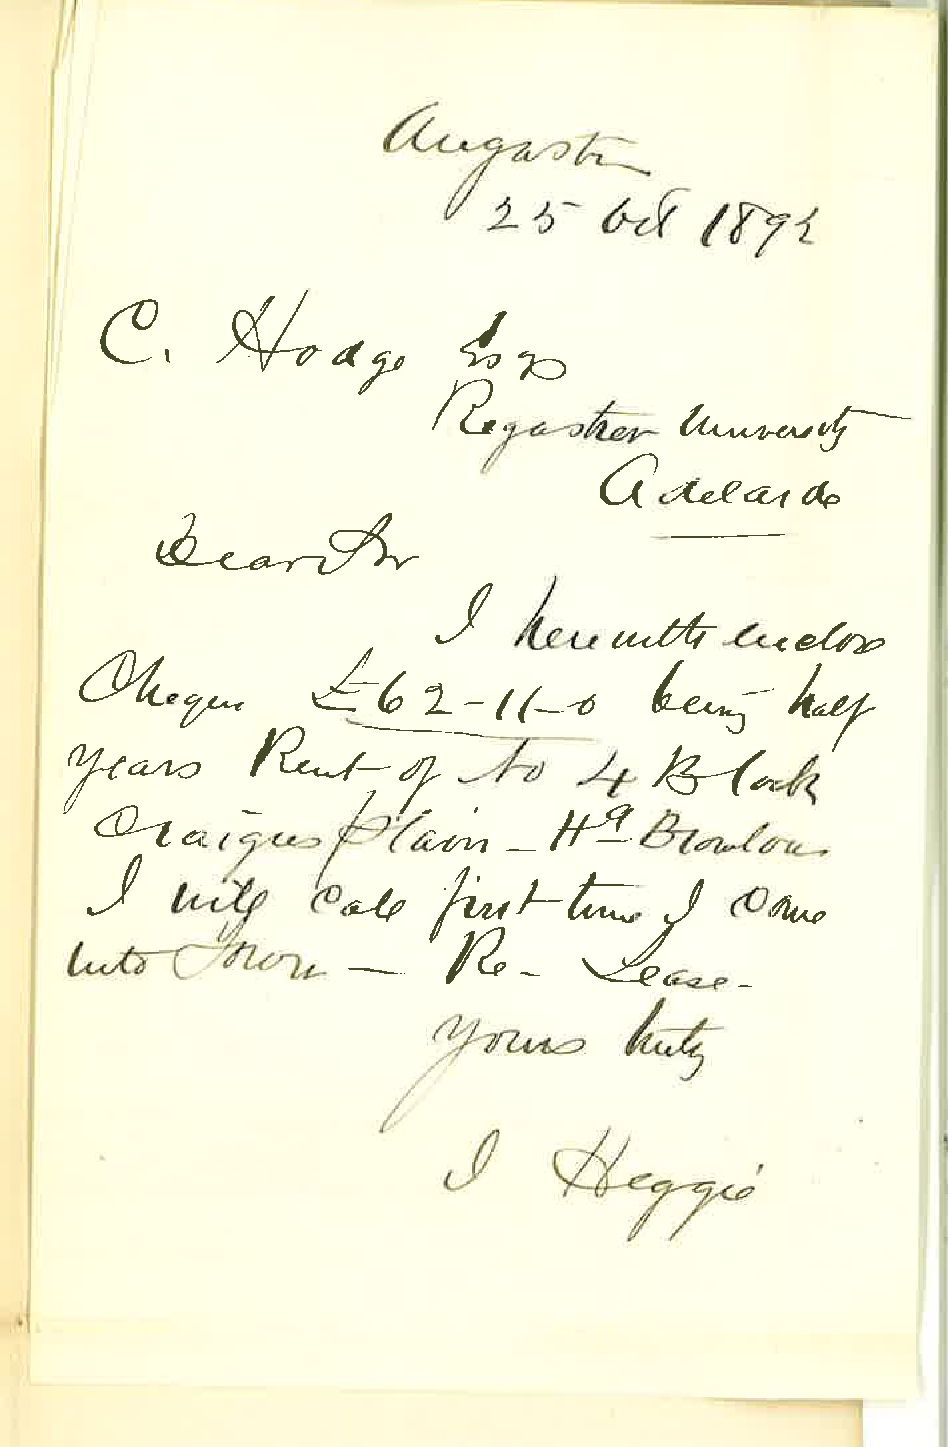 Angaston
25 Oct 1892
C. Hodge Esqr
Regastrer University
Adelaide
Dear Sir
I herewith enclose
Cheque £62-11-0 being half
years Rent of No 4 Block
Craigies Plain - Hd Brownlow
I will call first time I come
into Town - Re- Lease-
Yours truly
J Heggie